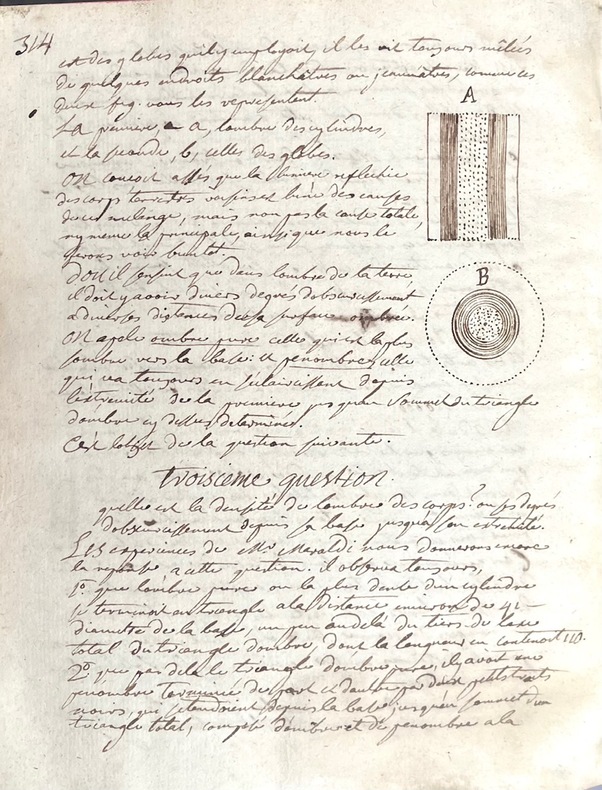 314
est des globes qu'il y employoit, il les vit toujours mêlées
de quelques endroits blanchâtres ou jaunâtres, comme ces
deux fig. vous les representent.
A
La premiere, A, lombre des cylindres,
et la seconde, b, celles des globes.
On conçoit assés que la lumiere reflechie
des corps terrestres voisins est bien des causes
de ce melange, mais non pas la cause totale,
ny meme la principale, ainsi que nous le
ferons voir bientot.
B
Dou il sensuit que dans lombre de la terre
il doit y avoir divers degrés dobscurcissement
a diverses distances de sa surface
On apele ombre pure celle qui est la plus
sombre vers la base et penombre, celle
qui va toujours en seclaircissant depuis
lextremité de la premiere jusquau sommet du triangle
dombre cy dessus determiné.
Cest lobjet de la question suivante.
troisieme question.
quelle est la densité de lombre des corps? ou ses degrés
dobscurcissement depuis sa base jusqua son extremité.
Les experiences de Mr Maraldi nous donneront encore
la reponse a cette question. il observa toujours,
1º. que lombre pure ou la plus dense dun cylindre
se terminoit en triangle a la distance environ de 41
diametres de la base, un peu audela du tiers de laxe
total du triangle dombre, dont la longueur en contenoit 110.
2º. que par dela le triangle dombre pure, il y avoit une
penombre terminée de part et dautre par deux petits traits
noirs, qui setendoient depuis la base jusquau sommet dun
triangle total, composé dombre et de penombre a la